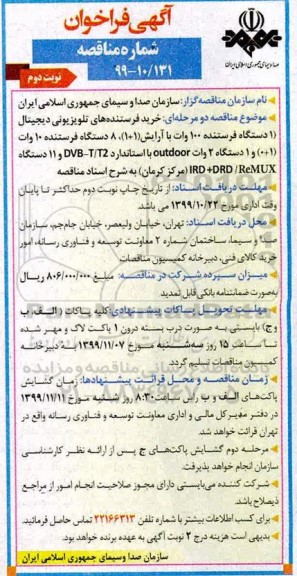 صدا و سیمای جمهوری اسلامی ایران
آگهی فراخوان
شماره مناقصه
۹۹-۱۰/۱۳۱
نوبت دوم
نام سازمان مناقصه‌گزار: سازمان صدا و سیمای جمهوری اسلامی ایران
موضوع مناقصه دو مرحله‌ای: خرید فرستنده‌های تلویزیونی دیجیتال
(۱ دستگاه فرستنده ۱۰۰ وات با آرایش (۱+۱)، ۸ دستگاه فرستنده ۱۰ وات
(۱+۰) و ۱ دستگاه ۲ وات outdoor با استاندارد DVB-T/T2 و ۱۱ دستگاه
IRD+DRD/ReMUX (مرکز کرمان) به شرح اسناد مناقصه
مهلت دریافت اسناد: از تاریخ چاپ نوبت دوم حداکثر تا پایان
وقت اداری مورخ ۱۳۹۹/۱۰/۲۲ می باشد.
محل دریافت اسناد: تهران، خیابان ولیعصر، خیابان جام‌جم، سازمان
صدا و سیما، ساختمان شماره ۲ معاونت توسعه و فناوری رسانه، امور
خرید کالای فنی، دبیرخانه کمیسیون مناقصات
میزان سپرده شرکت در مناقصه: مبلغ ۸۰۶/۰۰۰/۰۰۰ ریال
به‌صورت ضمانتنامه بانکی قابل تمدید
مهلت تحویل پاکات پیشنهادی: کلیه پاکات (الف، ب
و ج) بایستی به صورت درب بسته درون ۱ پاکت لاک و مهر شده
تا ساعت ۱۵ روز سه‌شنبه مورخ ۱۳۹۹/۱۱/۰۷ به دبیرخانه
کمیسیون مناقصات تسلیم گردد.
زمان مناقصه و محل قرائت پیشنهادها: زمان گشایش
پاکت‌های الف و ب راس ساعت ۸:۳۰ روز شنبه مورخ ۱۳۹۹/۱۱/۱۱
در دفتر مدیر کل مالی و اداری معاونت توسعه و فناوری رسانه واقع در
تهران قرائت خواهد شد.
مرحله دوم گشایش پاکت‌های ج پس از ارائه نظر کارشناسی
سازمان انجام خواهد پذیرفت.
شرکت کننده می‌بایستی دارای مجوز صلاحیت انجام امور از مراجع
ذیصلاح باشد.
برای کسب اطلاعات بیشتر با شماره تلفن ۲۲۱۶۶۳۱۳ تماس حاصل فرمائید.
بدیهی است هزینه درج ۲ نوبت آگهی به عهده برنده خواهد بود.
سازمان صدا و سیمای جمهوری اسلامی ایران